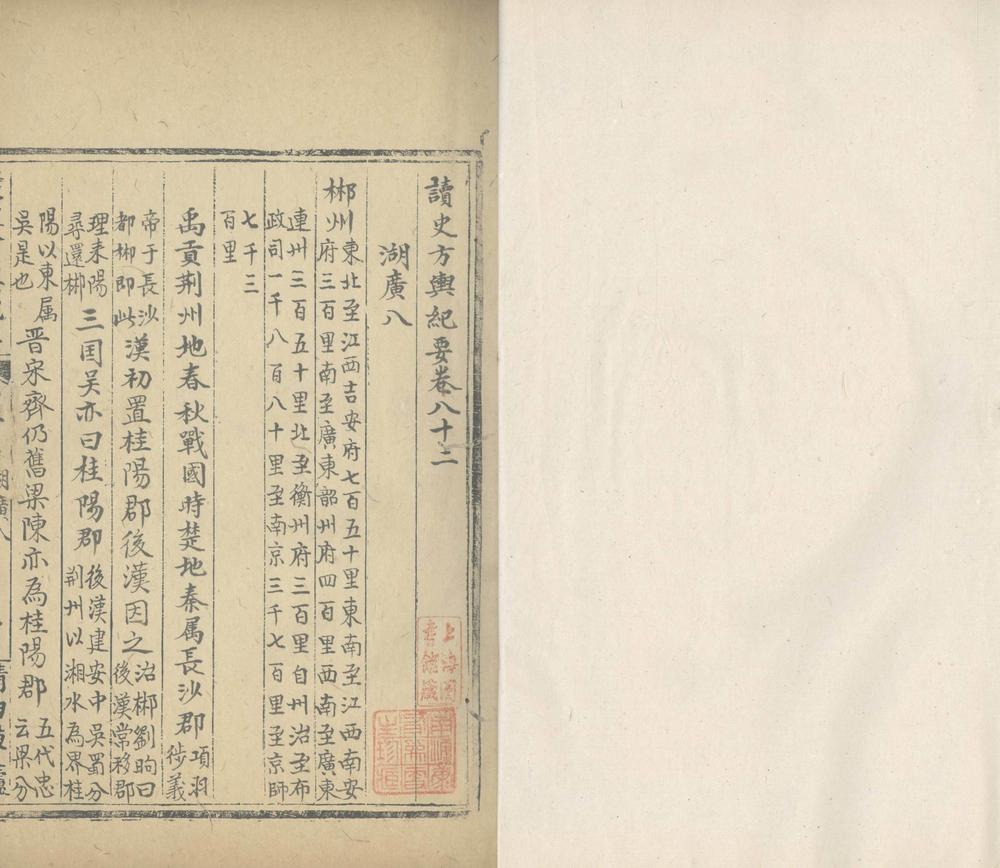 讀史方輿紀要卷八十二
湖廣八
郴州東北至江西吉安府七百五十里東南至江西南安
府三百里南至廣東韶州府四百里西南至廣東
連州三百五十里北至衡州府三百里自州治至布
政司一千八百八十里至南京三千七百里至京師
七千三
百里
禹貢荆州地春秋戰國時楚地秦属長沙郡項羽
徙義
帝于長沙
都郴即此漢初置桂陽郡後漢因之治郴劉昫曰
後漢常移郡
理耒陽
尋還郴三囯吴亦曰桂陽郡後漢建安中吳蜀分
荆州以湘水為界桂
陽以東属
吳是也晋宋齊仍舊梁陳亦為桂陽郡五代忠
云梁分
湖廣八
上海圖
書館藏